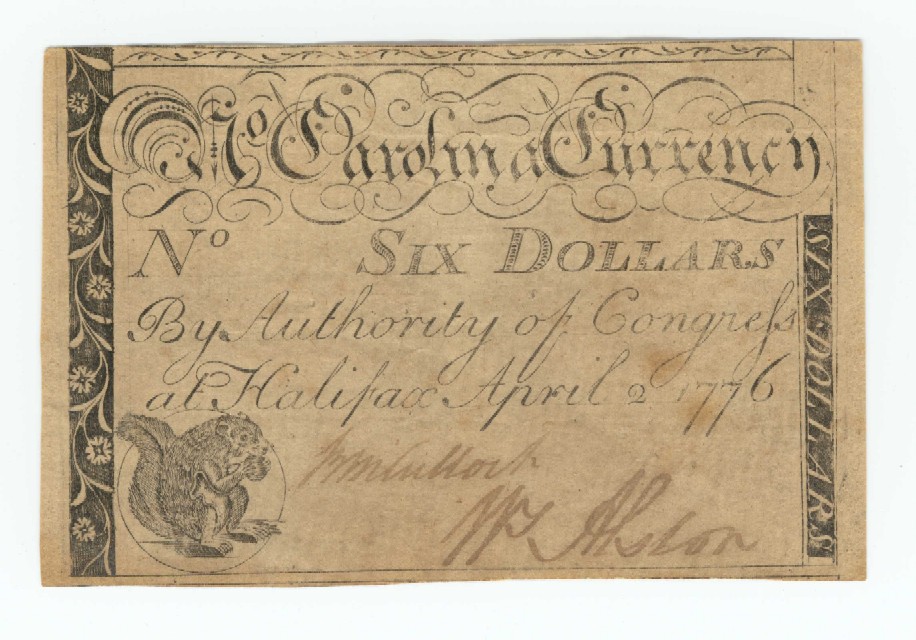 No Carolina Currency
No SIX DOLLARS
By Authority of Congreſs
at Halifax April 2 1776
Wm Alston
SIX DOLLARS